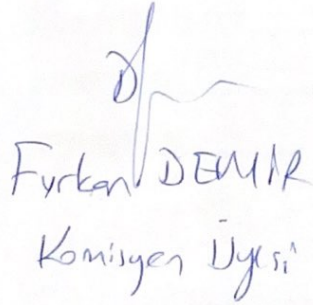 Furkan DEMİR
Komisyon Üyesi